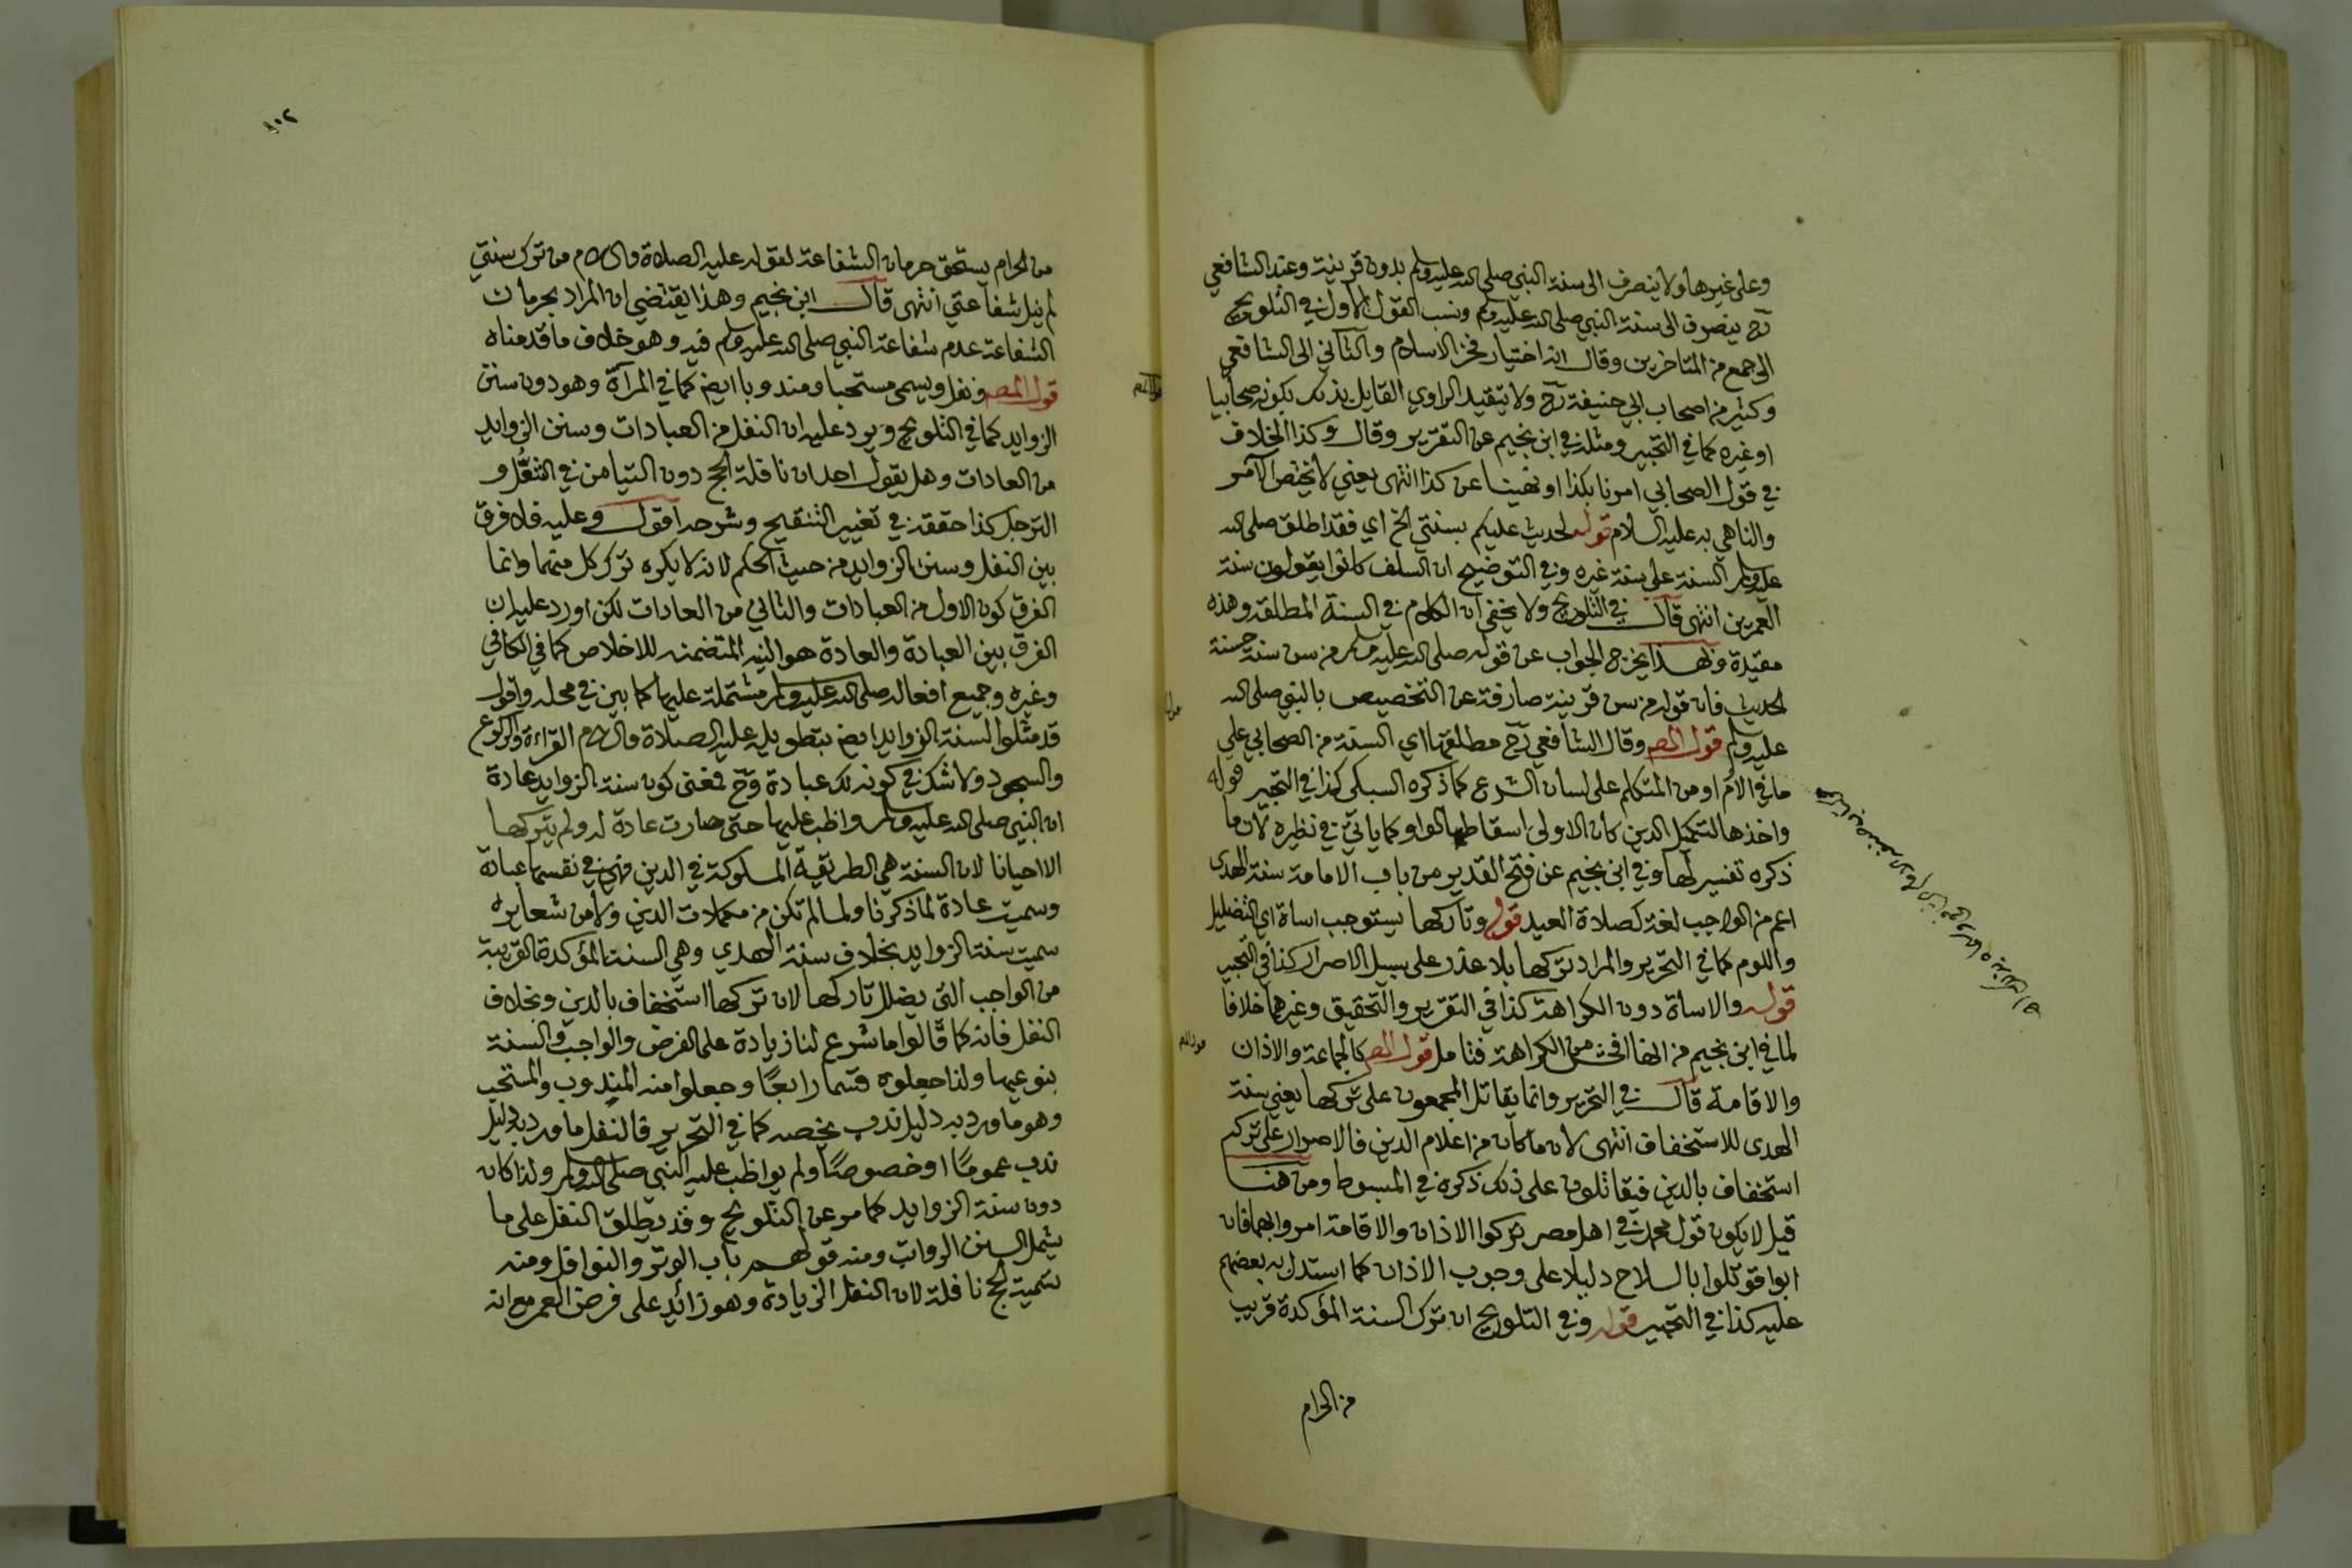 وعلى غيرها ولا ينصرف الى سنة النبي صلى الله عليه وسلم بدون قرينة وعند الشافعي
رح ينصرف الى سنة النبي صلى الله عليه وسلم ونسب القول الاول في التلويح
الى جمع من المتاخرين وقال انه اختيار فخر الاسلام والثاني الى الشافعي
وكثير من اصحاب ابي حنيفة رح ولا يتقيد الراوي القايل بذلك بكونه صحابيا
او غيره كما في التحبير ومثله في ابن نجيم عن التقرير وقال وكذا الخلاف
في قول الصحابي امرنا بكذا او نهينا عن كذا انتهى يعني لا يختص الآمر
والناهي به عليه السلام قوله لحديث عليكم بسنتي الخ اي فقد اطلق صلى الله
عليه وسلم السنة على سنة غيره وفي التوضيح ان السلف كانوا يقولون سنة
العمرين انتهى قال في التلويح ولا يخفى ان الكلام في السنة المطلقة وهذه
مقيدة وبهذا يخرج الجواب عن قوله صلى الله عليه وسلم من سن سنة حسنة
الحديث فان قوله من سن قرينة صارفة عن التخصيص بالنبي صلى الله
عليه وسلم قول المص وقال الشافعي رح مطلقها اي السنة من الصحابي على
ما في الام او من المتكلم على لسان الشرع كما ذكره السبكي كذا في التحبير قوله
واخذها لتكميل الدين كان الاولى اسقاط الواو كما ياتي في نظيره لان ما
ذكره تفسير لها وفي ابن نجيم عن فتح القدير من باب الامامة سنة الهدى
اعم من الواجب لغة كصلاة العيد قوله وتاركها يستوجب اساة اي التضليل
واللوم كما في التحرير والمراد تركها بلا عذر على سبيل الاصرار كذا في التحبير
قوله والاساة دون الكراهة كذا في التقرير والتحقيق وغيرهما خلافا
لما في ابن نجيم من انها افحش من الكراهة فتامل قول المص كالجماعة والاذان
والاقامة قال في التحرير وانما يقاتل المجمعون على تركها يعني سنة
الهدى للاستخفاف انتهى لان ما كان من اعلام الدين فالاصرار على تركه
استخفاف بالدين فيقاتلون على ذلك ذكره في المبسوط ومن هنا
قيل لا يكون قول محمد في اهل مصر تركوا الاذان والاقامة امروا بهما فان
ابوا قوتلوا بالسلاح دليلا على وجوب الاذان كما استدل به بعضهم
عليه كذا في التحبير قوله وفي التلويح ان ترك السنة المؤكدة قريب
من الحرام
١٠٢
من الحرام يستحق حرمان الشفاعة لقوله عليه الصلاة والسلام من ترك سنتي
لم ينل شفاعتي انتهى قال ابن نجيم وهذا يقتضي ان المراد بحرمان
الشفاعة عدم شفاعة النبي صلى الله عليه وسلم فيه وهو خلاف ما قدمناه
قول المص ونفل ويسمى مستحبا ومندوبا ايض كما في المرآة وهو دون سنن
الزوايد كما في التلويح ويرد عليه ان النفل من العبادات وسنن الزوايد
من العادات وهل يقول احد ان نافلة الحج دون التيامن في التنعل و
الترجل كذا حققه في تغيير التنقيح وشرحه اقول وعليه فلا فرق
بين النفل وسنن الزوايد من حيث الحكم لانه لا يكره ترك كل منهما وانما
الفرق كون الاول من العبادات والثاني من العادات لكن اورد عليه ان
الفرق بين العبادة والعادة هو النية المتضمنة للاخلاص كما في الكافي
وغيره وجميع افعاله صلى الله عليه وسلم مشتملة عليها كما بين في محله واقول
قد مثلوا لسنة الزوايد ايض بتطويله عليه الصلاة والسلام القراءة والركوع
والسجود ولا شك في كون ذلك عبادة وح فمعنى كون سنة الزوايد عادة
ان النبي صلى الله عليه وسلم واظب عليها حتى صارت عادة له ولم يتركها
الا احيانا لان السنة هي الطريقة المسلوكة في الدين فهي في نفسها عبادة
وسميت عادة لما ذكرنا ولما لم تكن من مكملات الدين ولا من شعايره
سميت سنة الزوايد بخلاف سنة الهدي وهي السنة المؤكدة القريبة
من الواجب التي يضلل تاركها لان تركها استخفاف بالدين وبخلاف
النفل فانه كما قالوا ما شرع لنا زيادة على الفرض والواجب والسنة
بنوعيها ولذا جعلوه قسما رابعًا وجعلوا منه المندوب والمستحب
وهو ما ورد به دليل ندب يخصه كما في التحرير فالنفل ما ورد به دليل
ندب عمومًا او خصوصًا ولم يواظب عليه النبي صلى الله عليه وسلم ولذا كان
دون سنة الزوايد كما مر عن التلويح وقد يطلق النفل على ما
يشمل السنن الرواتب ومنه قولهم باب الوتر والنوافل ومنه
تسمية الحج نافلة لان النفل الزيادة وهو زائد على فرض العمر مع انه